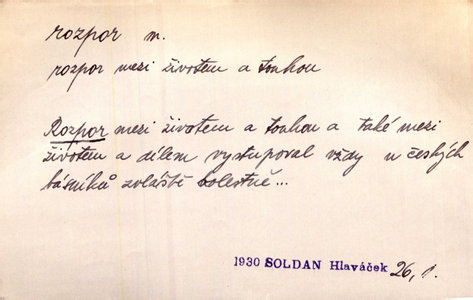 rozpor m.
rozpor mezi životem a touhou
Rozpor mezi životem a touhou a také mezi
životem a dílem vystupoval vždy u českých
básníků zvláště bolestně...
1930 SOLDAN Hlaváček 26, 1.